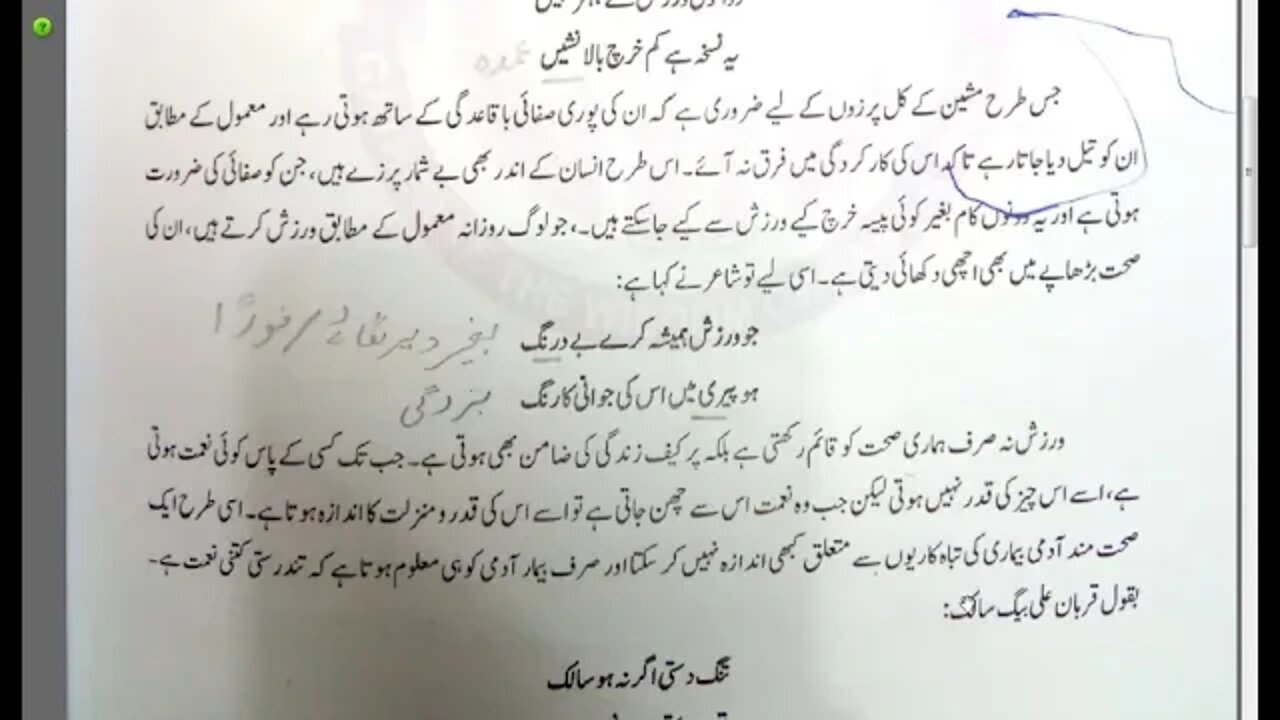 یہ نسخہ ہے کم خرچ بالا نشیں عمدہ
جس طرح مشین کے کل پرزوں کے لیے ضروری ہے کہ ان کی پوری صفائی باقاعدگی کے ساتھ ہوتی رہے اور معمول کے مطابق
ان کو تیل دیا جاتا رہے تاکہ اس کی کارکردگی میں فرق نہ آئے۔ اس طرح انسان کے اندر بھی بے شمار پرزے ہیں، جن کو صفائی کی ضرورت
ہوتی ہے اور یہ دونوں کام بغیر کوئی پیسہ خرچ کیے ورزش سے کیے جاسکتے ہیں۔، جو لوگ روزانہ معمول کے مطابق ورزش کرتے ہیں، ان کی
صحت بڑھاپے میں بھی اچھی دکھائی دیتی ہے۔ اسی لیے تو شاعر نے کہا ہے:
جو ورزش ہمیشہ کرے بے درنگ بغیر دیر لگائے / فوراً
ہو پیری میں اس کی جوانی کا رنگ
ورزش نہ صرف ہماری صحت کو قائم رکھتی ہے بلکہ پر کیف زندگی کی ضامن بھی ہوتی ہے۔ جب تک کسی کے پاس کوئی نعمت ہوتی
ہے، اسے اس چیز کی قدر نہیں ہوتی لیکن جب وہ نعمت اس سے چھن جاتی ہے تو اسے اس کی قدر و منزلت کا اندازہ ہوتا ہے۔ اسی طرح ایک
صحت مند آدمی بیماری کی تباہ کاریوں سے متعلق کبھی اندازہ نہیں کر سکتا اور صرف بیمار آدمی کو ہی معلوم ہوتا ہے کہ تندرستی کتنی نعمت ہے۔
بقول قربان علی بیگ سالک:
تنگ دستی اگر نہ ہو سالک